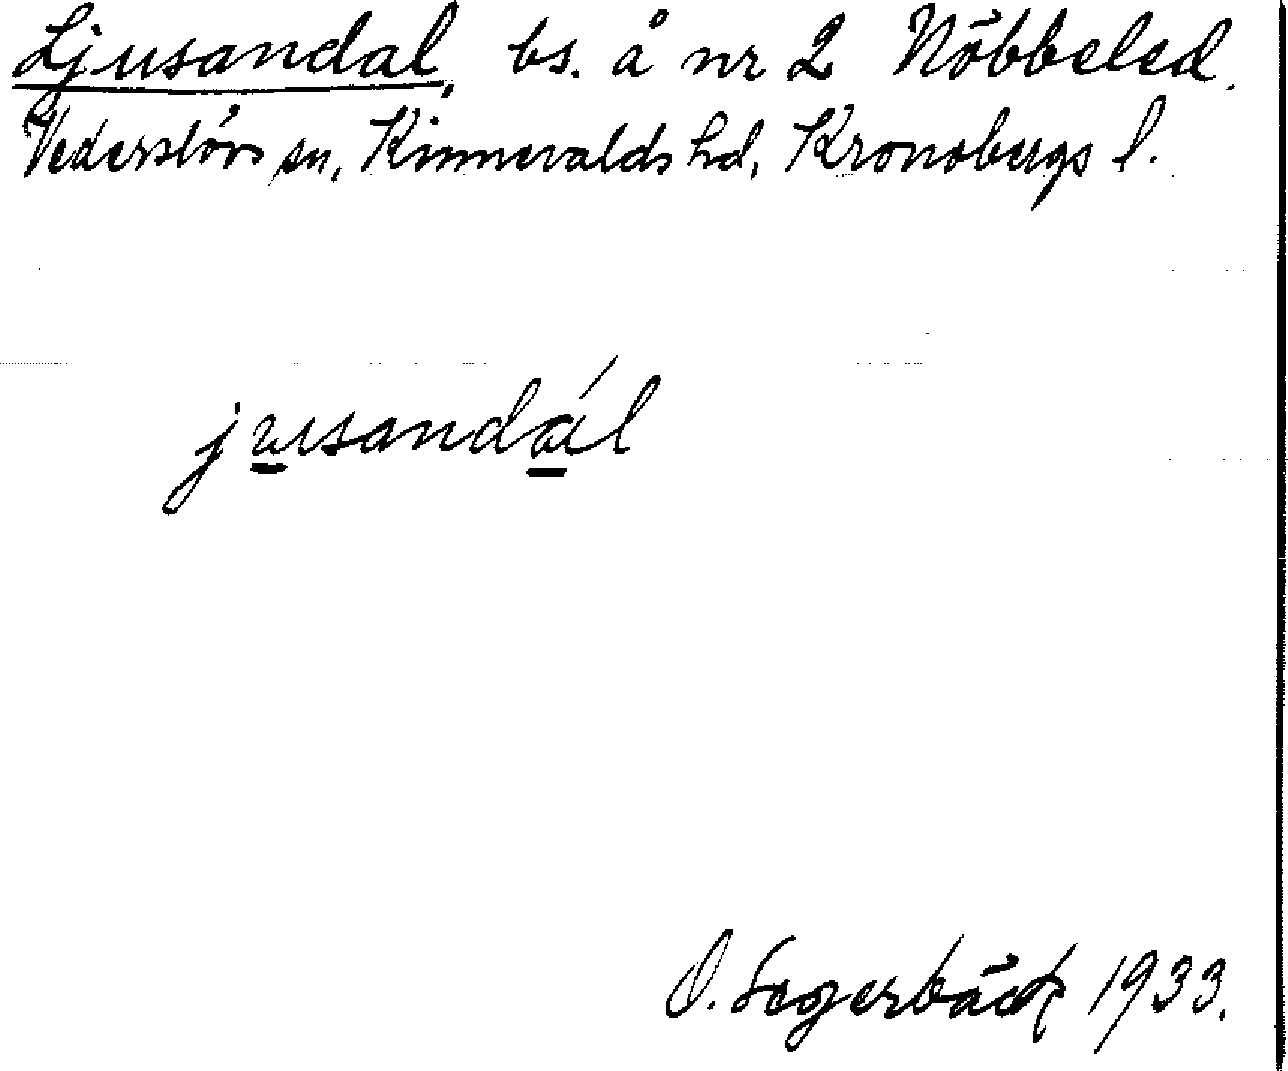 Ljusandal, bs. å nr 2 Nöbbeled.
Vederslövs sn, Kinnevalds hd, Kronobergs l.
jusandál
O. Segerbäck 1933.